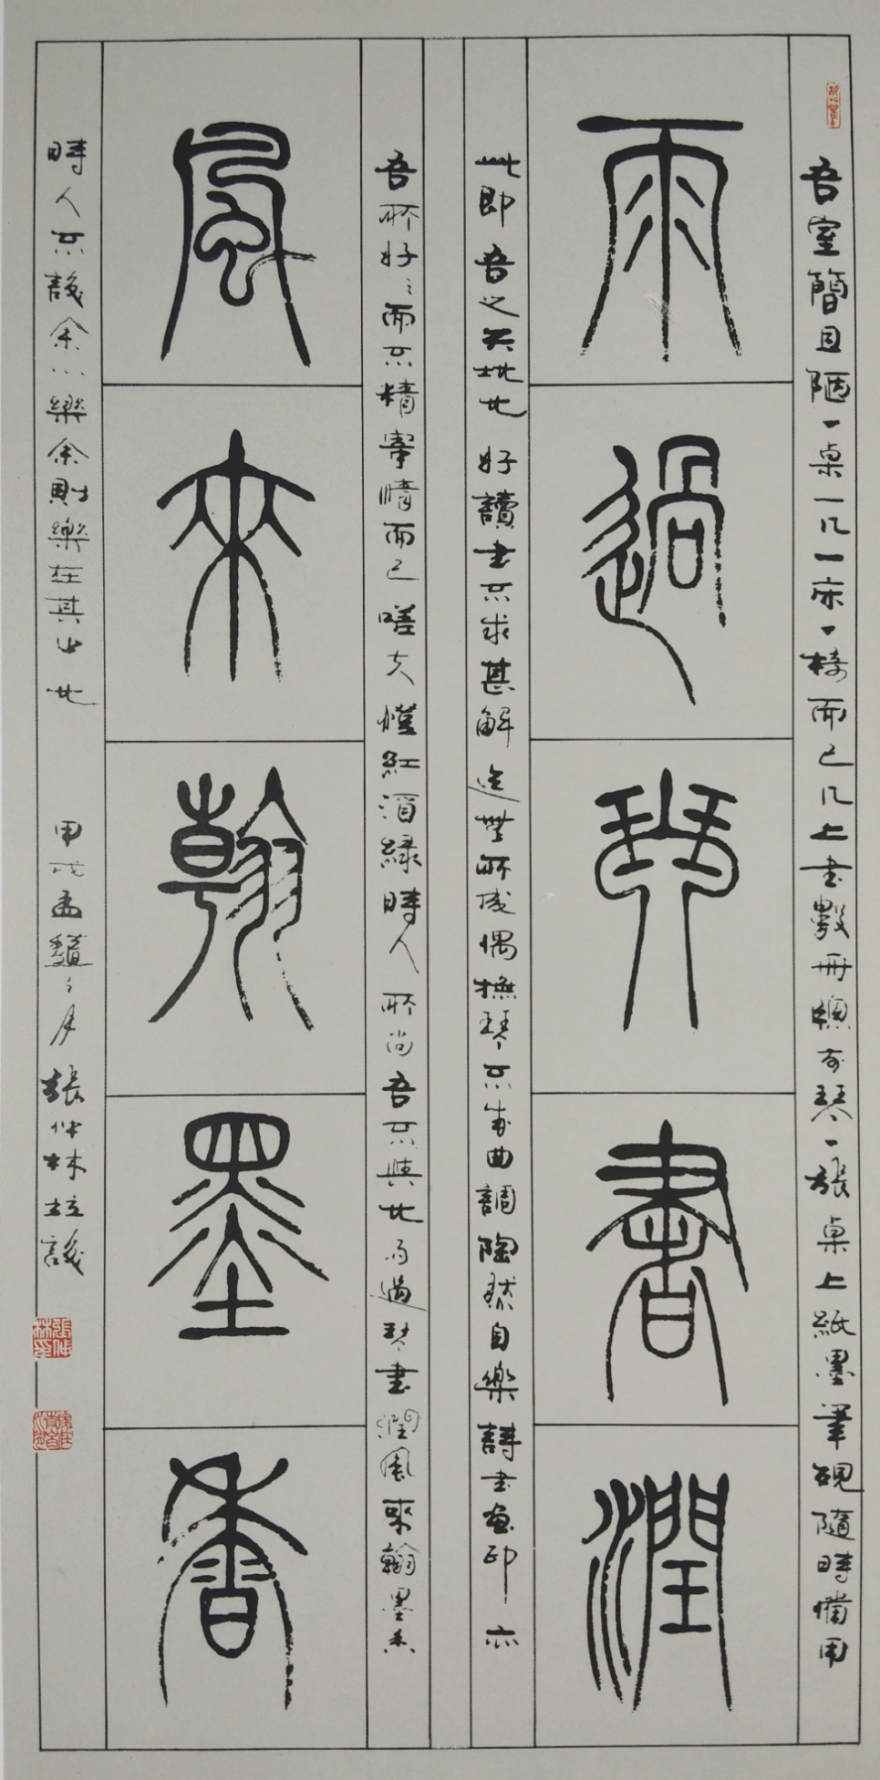 吾室簡且陋一桌一几一床一椅而已几上書數冊壁有琴一張桌上紙墨筆硯隨時備用
雨過琴書潤
此即吾之天地也好讀書不求甚解迄無所成偶撫琴不成曲調陶然自樂詩書畫印亦
吾所好之而不精寄情而已嗟夫燈紅酒綠時人所尚吾不與也雨過琴書潤風來翰墨香
風來翰墨香
時人不識余心樂余則樂在其中也
甲戌孟夏之月張仲林並識